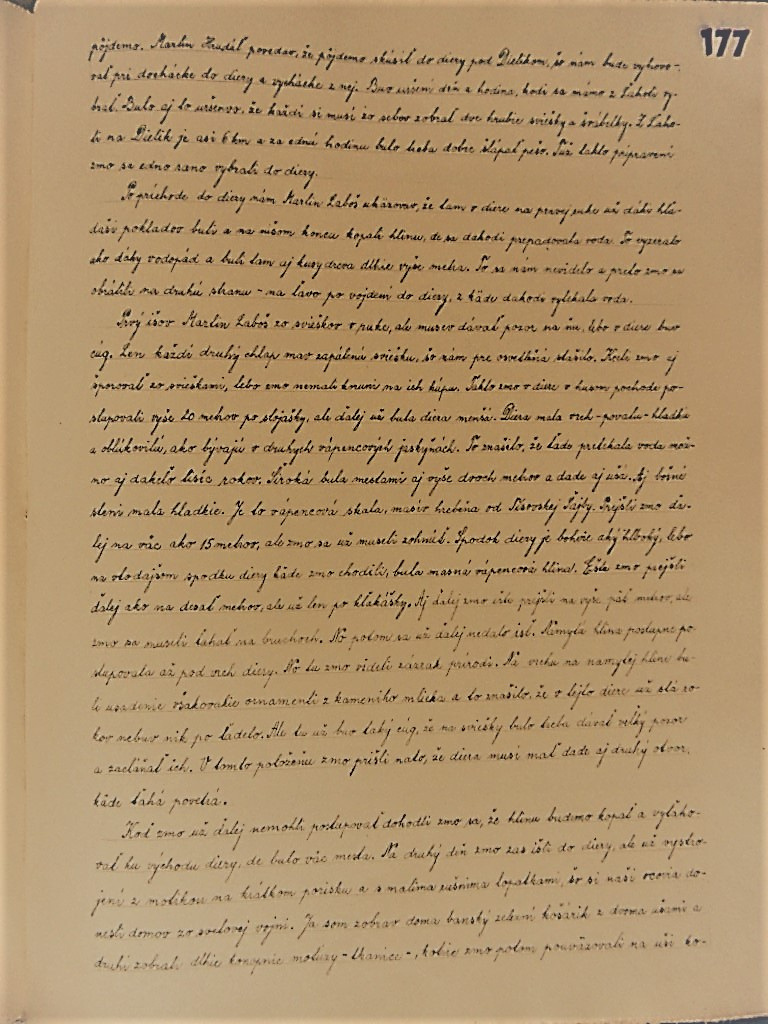 177
pôjdemo. Martin Hrudáš povedav, že pôjdemo skúsiť do diery pod Dielikom, šo nám bude vyhovo-
vať pri dochácke do diery a vychácke z nej. Buv určení děň a hodina, kedi sa mámo z Lahoti vy-
brať. Bulo aj to určenvo, že každí si musí zo sebov zobrať dve hrubie sviešky a širábelky. Z Laho-
ti na Dielik je asi 6 km a za ednú hodinu bulo treba dobre šlapať pešo. Túž takto pripravení
zmo sa edno rano vybrali do diery.
Po príchode do diery nám Martin Laboš ukázovav, že tam v diere na pravej ruke už dáki hľa-
dáši pokladov buli a na nišom koncu kopali hlinu, de sa dakodi prepadovala voda. To vyzeralo
ako dáky vodopád a buli tam aj kusy dreva dlhie výše metra. To sa nám nevidelo a preto zmo sa
obrátili na druhú stranu - na ľavo po vojdení do diery, z káde dakode vytekala voda.
Prvý išov Martin Laboš zo svieškov v ruke, ale musev dávať pozor na ňu, lebo v diere buv
cúg. Len každí druhý chlap mav zapálenú sviešku, šo nám pre osvetleňá stašilo. Kceli zmo aj
šporovať zo svieškami, lebo zmo nemali koruni na ich kúpu. Takto zmo v diere v husom pochode po-
stupovali výše 20 metrov po stojášky, ale ďalej už bula diera menšá. Diera mala vrch-povalu-hladkú
a oblúkovitú, ako bývajú v druhych vápencových jaskyňách. To znašilo, že tade pretekala voda mož-
no aj dakeľo tisíc rokov. Široká bula mestami aj výše dvoch metrov a dade aj užá. Aj bošné
steni mala hladkie. Je to vápencová skala, masív hrebeňa od Tisovskej Šajby. Prejšli zmo ďa-
lej na vác ako 15 metrov, ale zmo sa už museli zohnúť. Spodok diery je bohvie aký hlboký, lebo
na vtodajšom spodku diery káde zmo chodili, bula masná vápencová hlina. Ešte zmo prejšli
ďalej ako na desať metrov, ale už len po kľakášky. Aj ďalej zmo išťe prejšli na výše päť metrov, ale
zmo sa museli ťahať na bruchoch. No potom sa už ďalej nedalo isť. Namytá hlina postupne po-
stupovala až pod vrch diery. No tu zmo videli zázrak prírodi. Na vrchu na namytej hline bu-
li usadenie všakovakie ornamenti z kameního mlieka a to znašilo, že v tejto diere už stá ro-
kov nebuv nik po tadeto. Ale tu už buv taký cúg, že na sviešky bulo treba dávať veľký pozor
a zacláňať ich. V tomto položeňu zmo prišli nato, že diera musí mať dade aj druhý otvor,
káde ťahá povetrá.
Keď zmo už ďalej nemohli postupovať dohodli zmo sa, že hlinu budemo kopať a vyťaho-
vať ku východu diery, de bulo vác mesta. Na druhý děň zmo zas išli do diery, ale už vystro-
jení z motikou na krátkom porisku a s malima rušnima lopatkami, šo si naši ocovia do-
nesli domov zo svetovej vojni. Ja som zobrav doma banský zelezní košárik z dvoma ušami a
druhí zobrali dlhie konopnie motúzy-tkanice-, kotrie zmo potom pouväzovali na uši ko-